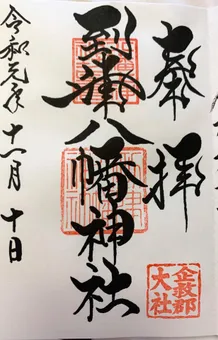 奉拝
到津八幡神社
令和元年十一月十日
企救郡
大社